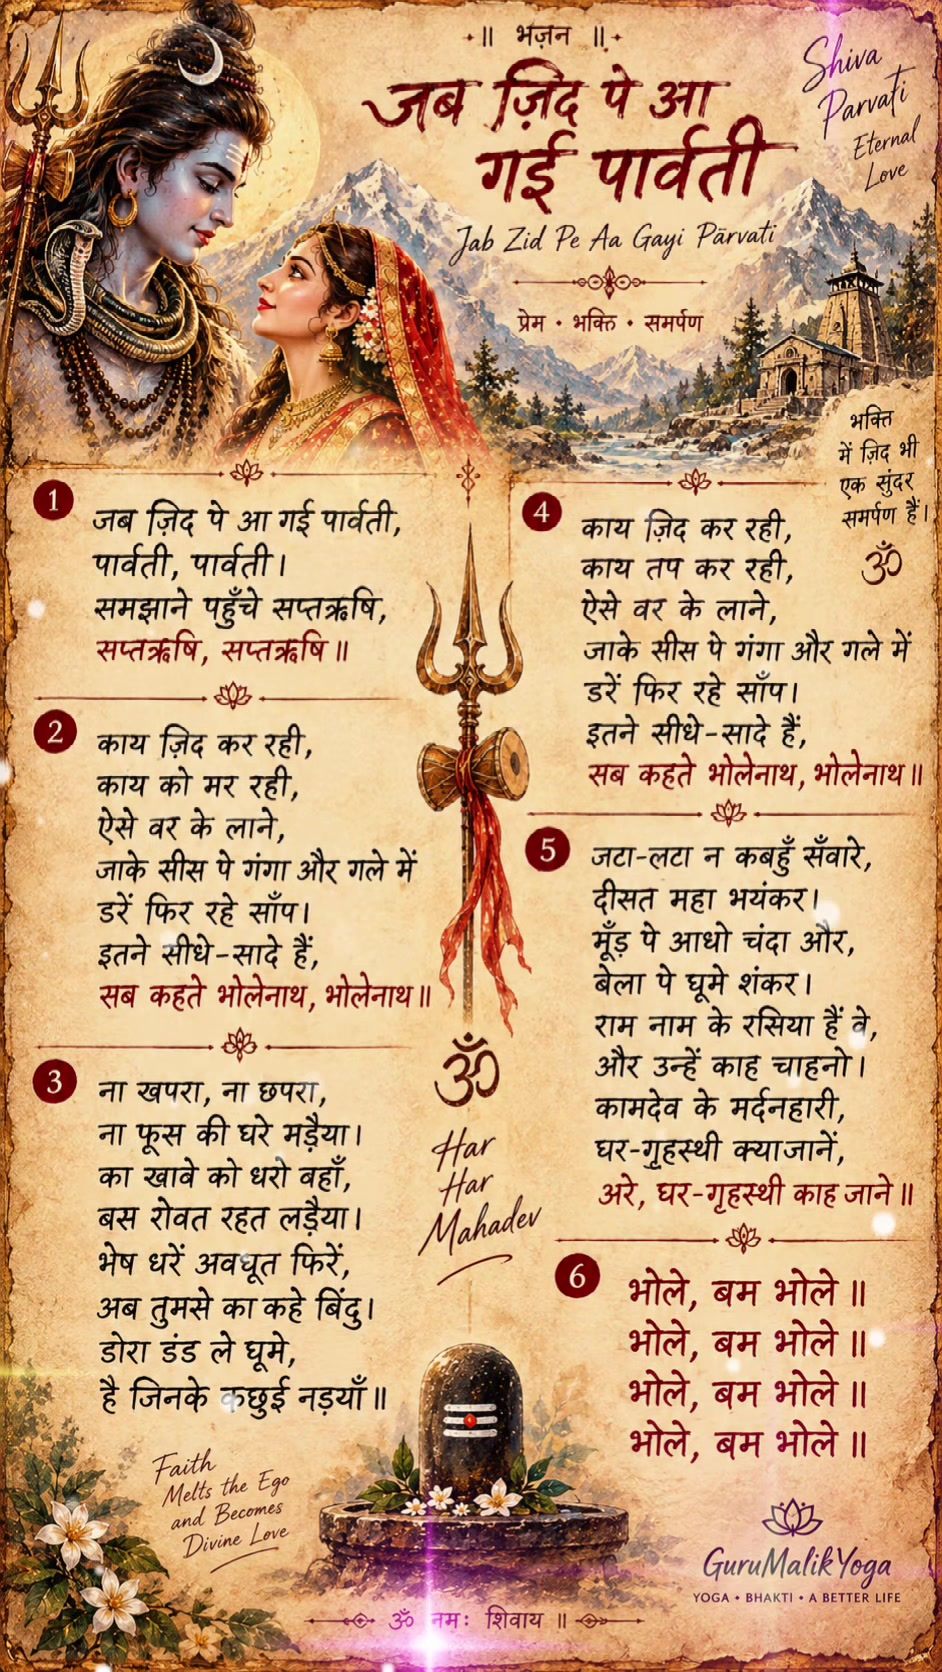 ॥ भज़न ॥
जब ज़िद पे आ
गई पार्वती
Jab Zid Pe Aa Gayi Pārvati
प्रेम • भक्ति • समर्पण
Shiva
Parvati
Eternal
Love
भक्ति
में ज़िद भी
एक सुंदर
समर्पण हैं।
ॐ
1
जब ज़िद पे आ गई पार्वती,
पार्वती, पार्वती।
समझाने पहुँचे सप्तऋषि,
सप्तऋषि, सप्तऋषि॥
2
काय ज़िद कर रही,
काय को मर रही,
ऐसे वर के लाने,
जाके सीस पे गंगा और गले में
डरें फिर रहे साँप।
इतने सीधे-सादे हैं,
सब कहते भोलेनाथ, भोलेनाथ॥
3
ना खपरा, ना छपरा,
ना फूस की घरे मड़ैया।
का खावे को धरो वहाँ,
बस रोवत रहत लड़ैया।
भेष धरें अवधूत फिरें,
अब तुमसे का कहे बिंदु।
डोरा डंड ले घूमे,
है जिनके कछुई नड़याँ॥
4
काय ज़िद कर रही,
काय तप कर रही,
ऐसे वर के लाने,
जाके सीस पे गंगा और गले में
डरें फिर रहे साँप।
इतने सीधे-सादे हैं,
सब कहते भोलेनाथ, भोलेनाथ॥
5
जटा-लटा न कबहुँ सँवारे,
दीसत महा भयंकर।
मूँड़ पे आधो चंदा और,
बेला पे घूमे शंकर।
राम नाम के रसिया हैं वे,
और उन्हें काह चाहनो।
कामदेव के मर्दनहारी,
घर-गृहस्थी क्याजानें,
अरे, घर-गृहस्थी काह जाने॥
6
भोले, बम भोले॥
भोले, बम भोले॥
भोले, बम भोले॥
भोले, बम भोले॥
ॐ
Har
Har
Mahadev
Faith
Melts the Ego
and Becomes
Divine Love
GuruMalikYoga
YOGA • BHAKTI • A BETTER LIFE
ॐ नमः शिवाय ॥